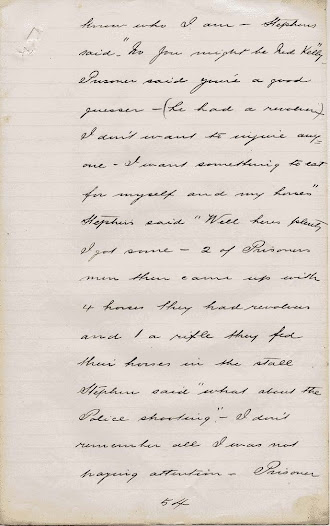 know who I am – Stephens
said "No you might be Ned Kelly"
Prisoner said you're a good
guesser – (he had a revolver)
I don't want to injure any=
one – I want something to eat
for myself and my horses"
Stephens said "Well heres plenty
I got some – 2 of Prisoners
men then came up with
4 horses they had revolvers
and 1 a rifle they fed
their horses in the stall
Stephen said "what about the
Police shooting" – I don't
remember all I was not
paying attention – Prisoner
54